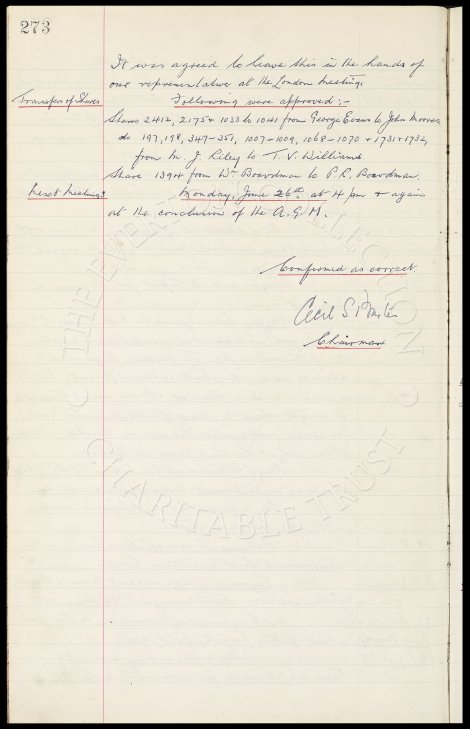 273
It was agreed to leave this in the hands of
our representative at the London meeting.
Transfer of Shares
Following were approved:-
Shares 2412, 2175 + 1033 to 1041 from George Evans to John Moores
do 197, 198, 347-351, 1007-1009, 1068-1070 + 1731+1732,
from M. J. Riley to T. V. Williams
Share 1394 from Wm Boardman to P. R. Boardman
Next Meetings
Monday, June 26th at 4 pm + again
at the conclusion of the A.G.M.
Confirmed as correct
Cecil S
Chairman
THE EVERTON COLLECTION
CHARITABLE TRUST